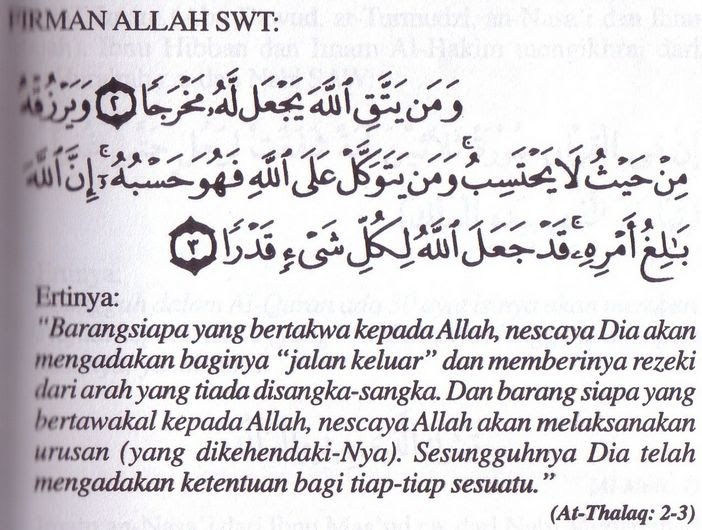 FIRMAN ALLAH SWT:
وَمَن يَتَّقِ ٱللَّهَ يَجْعَل لَّهُۥ مَخْرَجًا ٢ وَيَرْزُقْهُ
مِنْ حَيْثُ لَا يَحْتَسِبُ ۚ وَمَن يَتَوَكَّلْ عَلَى ٱللَّهِ فَهُوَ حَسْبُهُۥٓ ۚ إِنَّ ٱللَّهَ
بَٰلِغُ أَمْرِهِۦ ۚ قَدْ جَعَلَ ٱللَّهُ لِكُلِّ شَىْءٍ قَدْرًا ٣
Ertinya:
"Barangsiapa yang bertakwa kepada Allah, nescaya Dia akan
mengadakan baginya “jalan keluar” dan memberinya rezeki
dari arah yang tiada disangka-sangka. Dan barang siapa yang
bertawakal kepada Allah, nescaya Allah akan melaksanakan
urusan (yang dikehendaki-Nya). Sesungguhnya Dia telah
mengadakan ketentuan bagi tiap-tiap sesuatu.”
(At-Thalaq: 2-3)